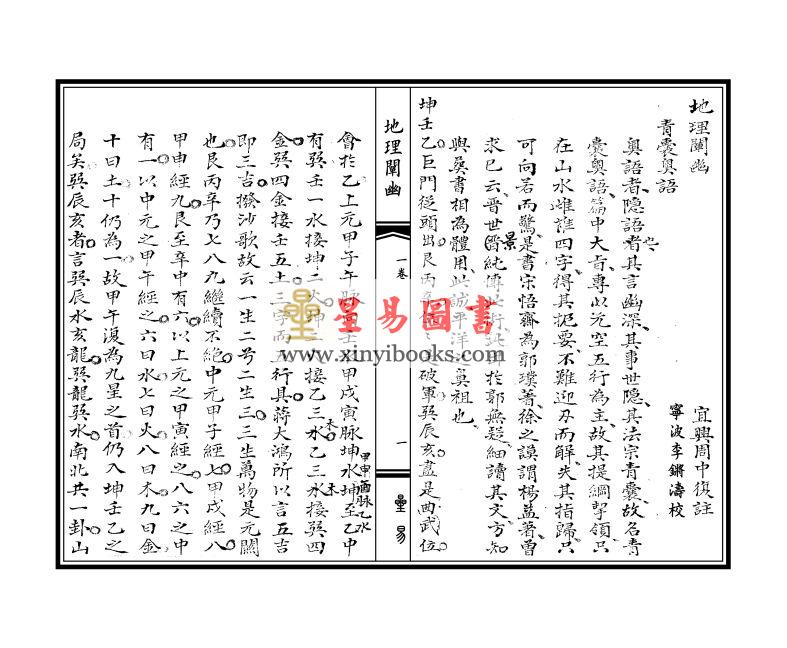 地理闡幽
青囊奧語
宜興周中復註
寧波李鏘濤校
奧語者隱語者也其言幽深其事世隱其法宗青囊故名青
囊奧語篇中大旨專以元空五行為主故其提綱挈領只
在山水雌雄四字得其扼要不難迎刃而解失其指歸只
可向若而驚是書宋悟齋為郭璞著徐之謨謂楊益著曾
求已云晉世景純傳此術
於郭無疑細讀其文方知
與葬書相為體用此誠平洋
祖也
坤壬乙巨門從頭出艮丙辛位
破軍巽辰亥盡是武
位
地理闡幽
一卷
一
星易
會於乙上元甲子午脉
甲戌寅脉坤水坤至乙中
甲申酉脉乙水
有巽壬一水接坤二火坤二
接乙三水乙三水接巽四
木
木
金巽四金接壬五土三字而五行具蔣大鴻所以言五吉
即三吉撥沙歌故云一生二兮二生三三生萬物是元關
也艮丙辛乃七八九繼續不絕中元甲子經七甲戌經八
甲申經九艮至辛中有六以上元之甲寅經之八六之中
有一以中元之甲午經之六曰水七曰火八曰木九曰金
十曰土十仍為一故甲午復為九星之首仍入坤壬乙之
局矣巽辰亥者言巽辰水亥龍巽龍巽水南北共一卦山
星易圖書
www.xinyibooks.com